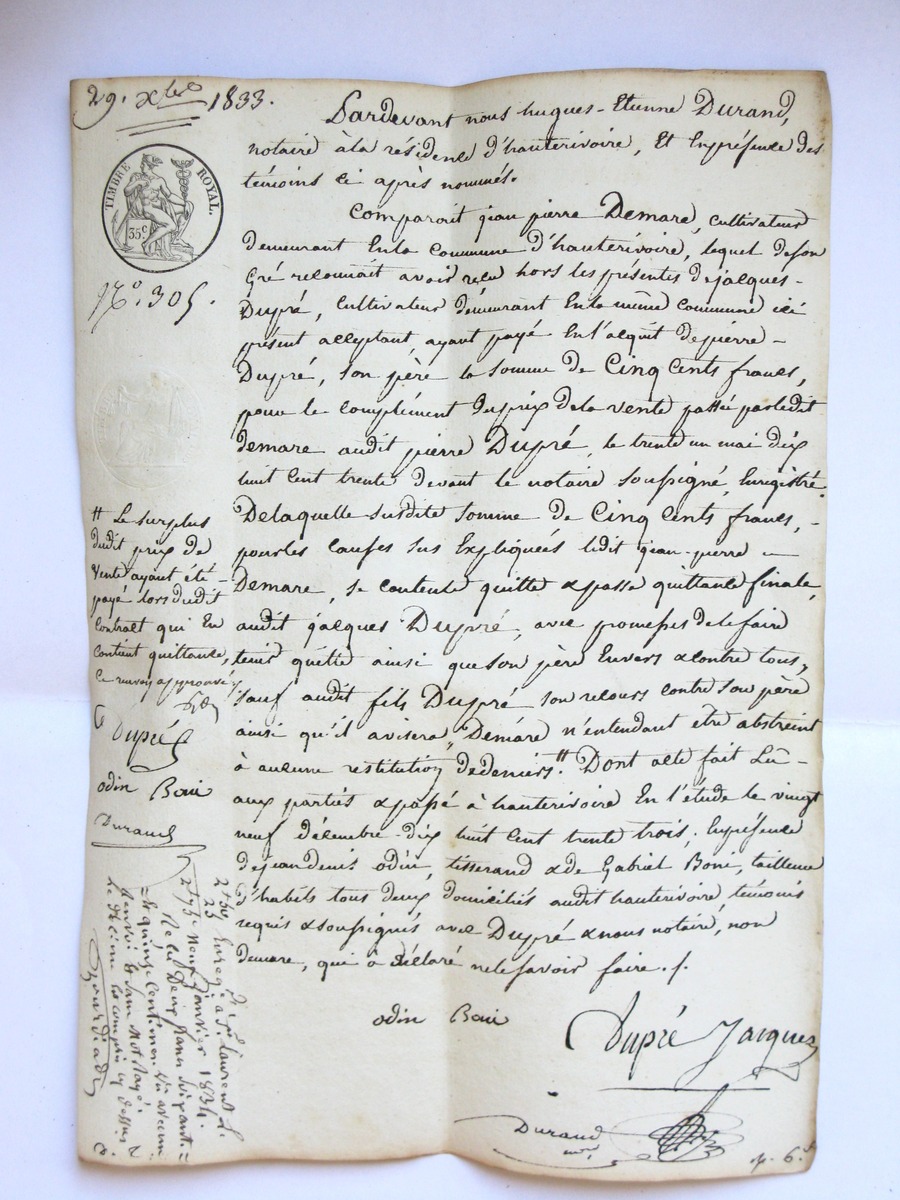 29. Xbre 1833.
TIMBRE ROYAL.
35c
No. 305.
Pardevant nous hugues-Etienne Durand,
notaire à la résidence d'hauterivoire, Et En présence des
témoins ci après nommés.
Comparait jean pierre Demare, cultivateur
demeurant En la commune d'hauterivoire, lequel de son
Gré reconnait avoir reçu hors les présentes de jacques-
Dupré, Cultivateur demeurant En la même commune ici
présent acceptant, ayant payé En l'acquit de pierre-
Dupré, son père la somme de Cinq Cents francs,
pour le complément du prix de la vente passée par ledit
demare audit pierre Dupré, le trente un mai dix
huit cent trente devant le notaire soussigné, Enregistré.
De laquelle susdite somme de Cinq Cents francs, -
pour les causes sus Expliquées ledit jean-pierre -
Demare, se contente quitte & passe quittance finale,
audit jacques Dupré, avec promesses de le faire
tenir quitte ainsi que son père Envers & contre tous,
sauf audit fils Dupré son recours contre son père
ainsi qu'il avisera, Demare n'entendant être abstreint
à aucune restitution de deniers. # Dont acte fait Lu -
aux parties & passé à hauterivoire En l'étude le vingt
neuf décembre dix huit cent trente trois, En présence
de jean denis odin, tisserand & de Gabriel Boni, tailleur
d'habits tous deux domiciliés audit hauterivoire, témoins
requis & soussignés avec Dupré & nous notaire, non
demare, qui a déclaré ne le savoir faire ./.
odin Boni
Dupré Jacques
Durand
nre.
# Le surplus
dudit prix de
Vente ayant été -
payé lors dudit
contract qui En
contient quittance,
ce renvoy approuvé
Dupré
odin Boni
Durand
Enreg. à St. Laurent
neuf janvier 1834.
Reçu Deux francs soixante =
= quinze Centimes
Renvoi & sans mot rayé.
Le décime compris